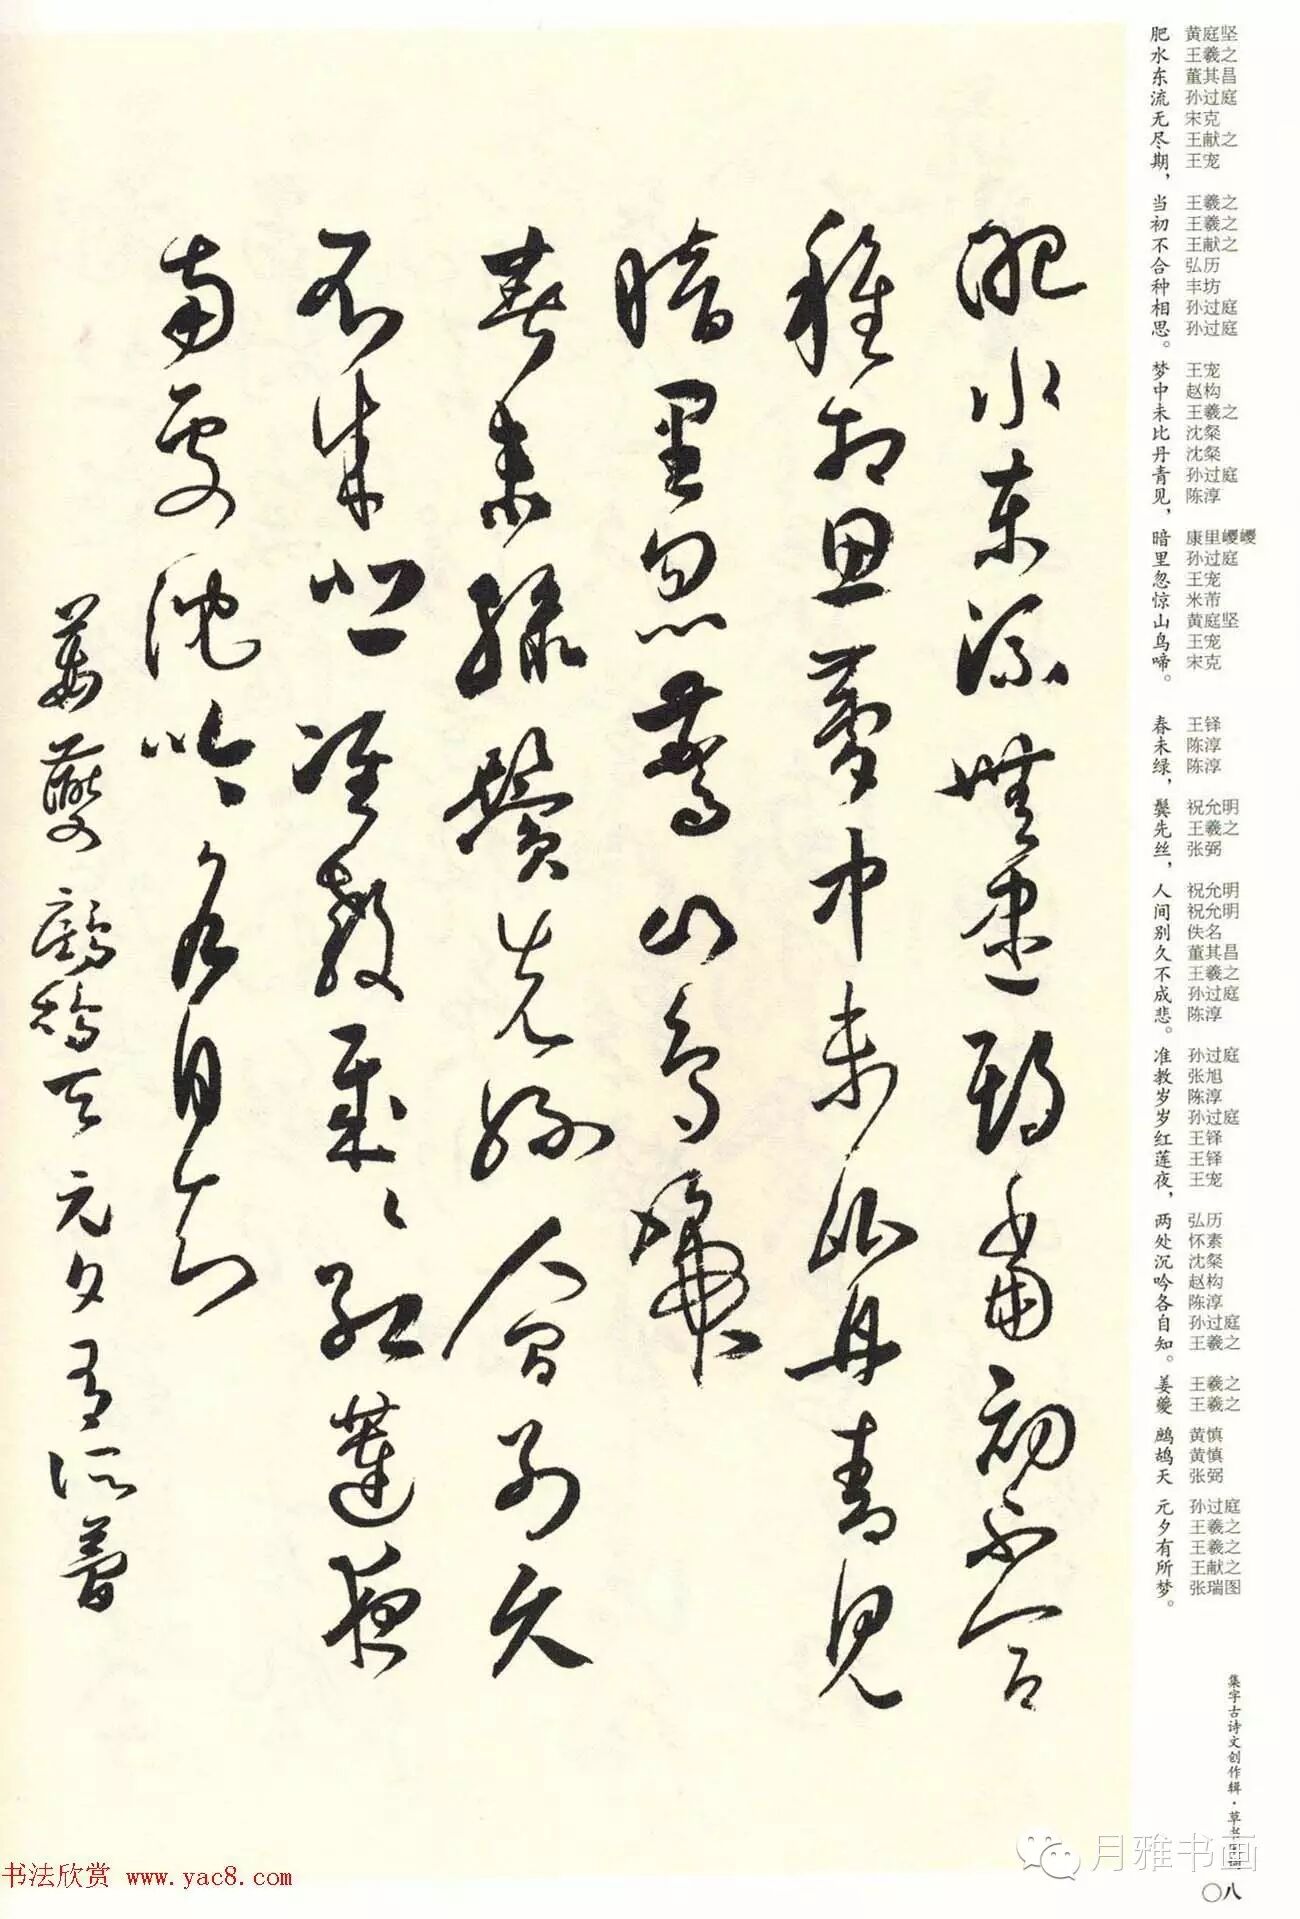 肥水东流无尽期，当初不合种相思。梦中未比丹青见，暗里忽惊山鸟啼。
春未绿，鬓先丝，人间别久不成悲。准教岁岁红莲夜，两处沉吟各自知。姜夔 鹧鸪天 元夕有所梦。
黄庭坚
王羲之
董其昌
孙过庭
宋克
王献之
王宠
王羲之
王羲之
王献之
弘历
丰坊
孙过庭
孙过庭
王宠
赵构
王羲之
沈粲
沈粲
孙过庭
陈淳
康里巎巎
孙过庭
王宠
米芾
黄庭坚
王宠
宋克
王铎
陈淳
陈淳
祝允明
王羲之
张弼
祝允明
祝允明
佚名
董其昌
王羲之
孙过庭
陈淳
孙过庭
张旭
陈淳
孙过庭
王铎
王铎
王宠
弘历
怀素
沈粲
赵构
陈淳
孙过庭
王羲之
王羲之
王羲之
黄慎
黄慎
张弼
孙过庭
王羲之
王羲之
王献之
张瑞图
肥水东流無尽期當初不合
種相思夢中未比丹青見
暗里忽驚山鳥啼
春未緑鬢先絲人間别久
不成悲准教歲歲紅蓮夜
兩處沈吟各自知
姜夔鷓鴣天元夕有所夢
集字古诗文创作辑·草书
〇八
月雅书画
书法欣赏 www.yac8.com